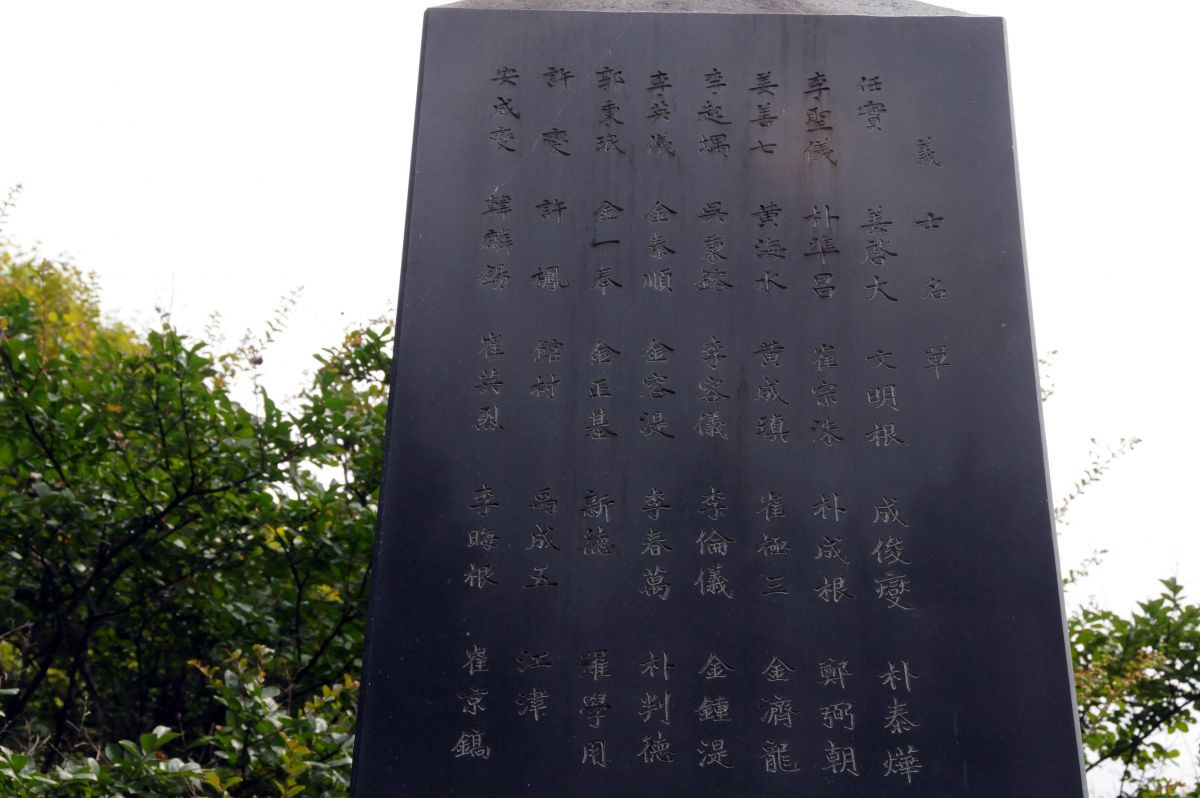 義士名單
任實 姜啓大 文明根 成俊燮 朴泰燁
李聖儀 朴準昌 崔宗洙 朴成根 鄭弼朝
姜善七 黃海水 黃成瑱 崔極三 金濟龍
李起堣 吳秉鎔 李容儀 李倫儀 金鍾湜
李英儀 金泰順 金容湜 李春萬 朴判德
郭秉珉 金一奉 金正基 新德 羅學用
許燮 許 館村 禹成五 江津
安成燮 韓麟錫 崔英烈 李晦根 崔京鎬